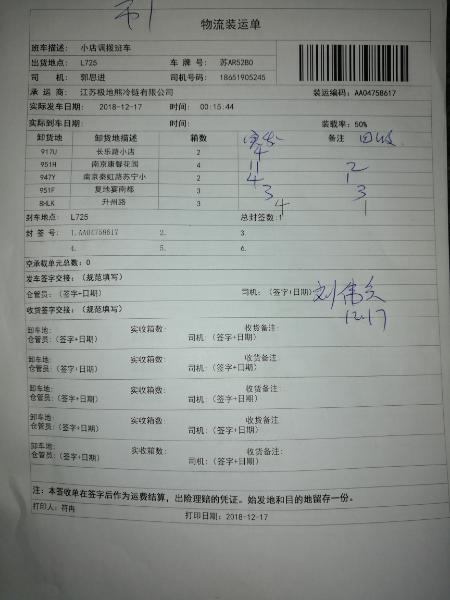 物流装运单
班车描述: 小店调拨班车
出货地点: L725 车 牌 号: 苏AR52B0
司 机: 郭思进 司机号码: 18651905245
承 运 商: 江苏极地熊冷链有限公司 装运编码: AA04758617
实际发车日期: 2018-12-17 时间: 00:15:44
实际到车日期: 时间: 装载率: 50%
卸货地 卸货地描述 箱数 实发 备注 回收
917U 长乐路小店 2 4
951H 南京康馨花园 4 11 2
947Y 南京秦虹路苏宁小 2 4 1
951F 复地宴南都 3 3 3
8HLK 升州路 3 4 1
封车地点: L725 总封签数:1
封 签 号: 1.AA04758617 2. 3.
4. 5. 6.
空承载单元总数: 0
发车签字交接: (规范填写)
仓管员: (签字+日期) 司机: (签字+日期) 刘伟
收货签字交接: (规范填写) 12.17
卸车地: 实收箱数: 收货备注:
仓管员: (签字+日期) 司机: (签字+日期)
卸车地: 实收箱数: 收货备注:
仓管员: (签字+日期) 司机: (签字+日期)
卸车地: 实收箱数: 收货备注:
仓管员: (签字+日期) 司机: (签字+日期)
卸车地: 实收箱数: 收货备注:
仓管员: (签字+日期) 司机: (签字+日期)
卸车地: 实收箱数: 收货备注:
仓管员: (签字+日期) 司机: (签字+日期)
注: 本签收单在签字后作为运费结算, 出险理赔的凭证。始发地和目的地留存一份。
打印人: 符冉
打印日期: 2018-12-17